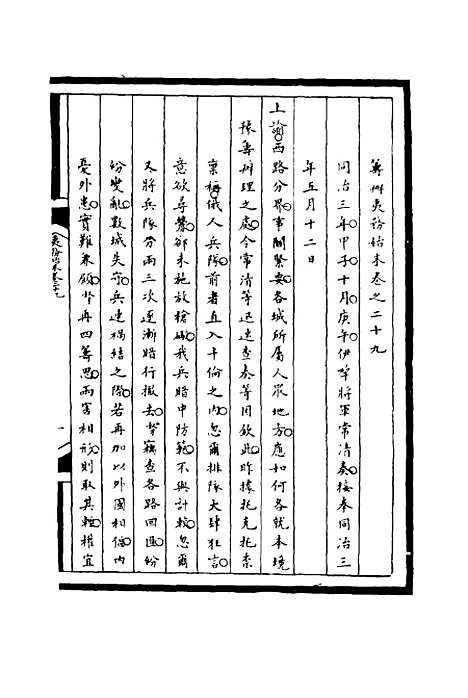 籌辦夷務始末卷之二十九
同治三年甲子十月庚午伊犂將軍常清奏接奉同治三
年五月十二日
上諭西路分界事關緊要各城所屬人眾地方應如何各就本境
妥籌辦理之處令常清等迅速查奏等因欽此昨據托克托泰
稟稱俄人兵隊前者直入卡倫之內忽爾排隊大肆狂言
意欲尋釁卻未施放槍礮我兵暗中防範不與計較忽爾
又將兵隊分兩三次逐漸暗行撤去奴才竊查各路回匪紛
紛變亂數城失守兵連禍結之際若再加以外國相偪內
憂外患實難兼顧奴才再四籌思兩害相形則取其輕權宜
夷務始末卷二十九
一